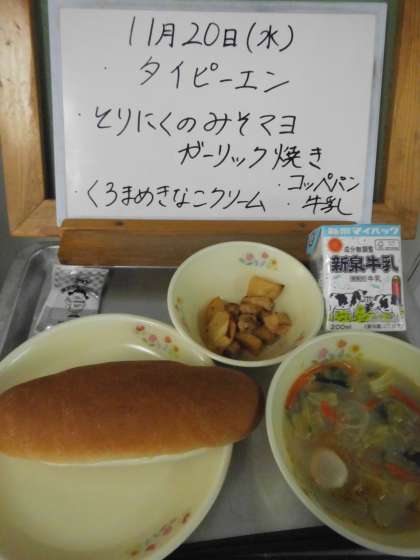 11月20日(水)
・タイピーエン
・とりにくのみそマヨ
ガーリック焼き
・くろまめきなこクリーム
・コッペパン
・牛乳
新泉マイパック
成分無調整
新泉牛乳
牛乳
200ml